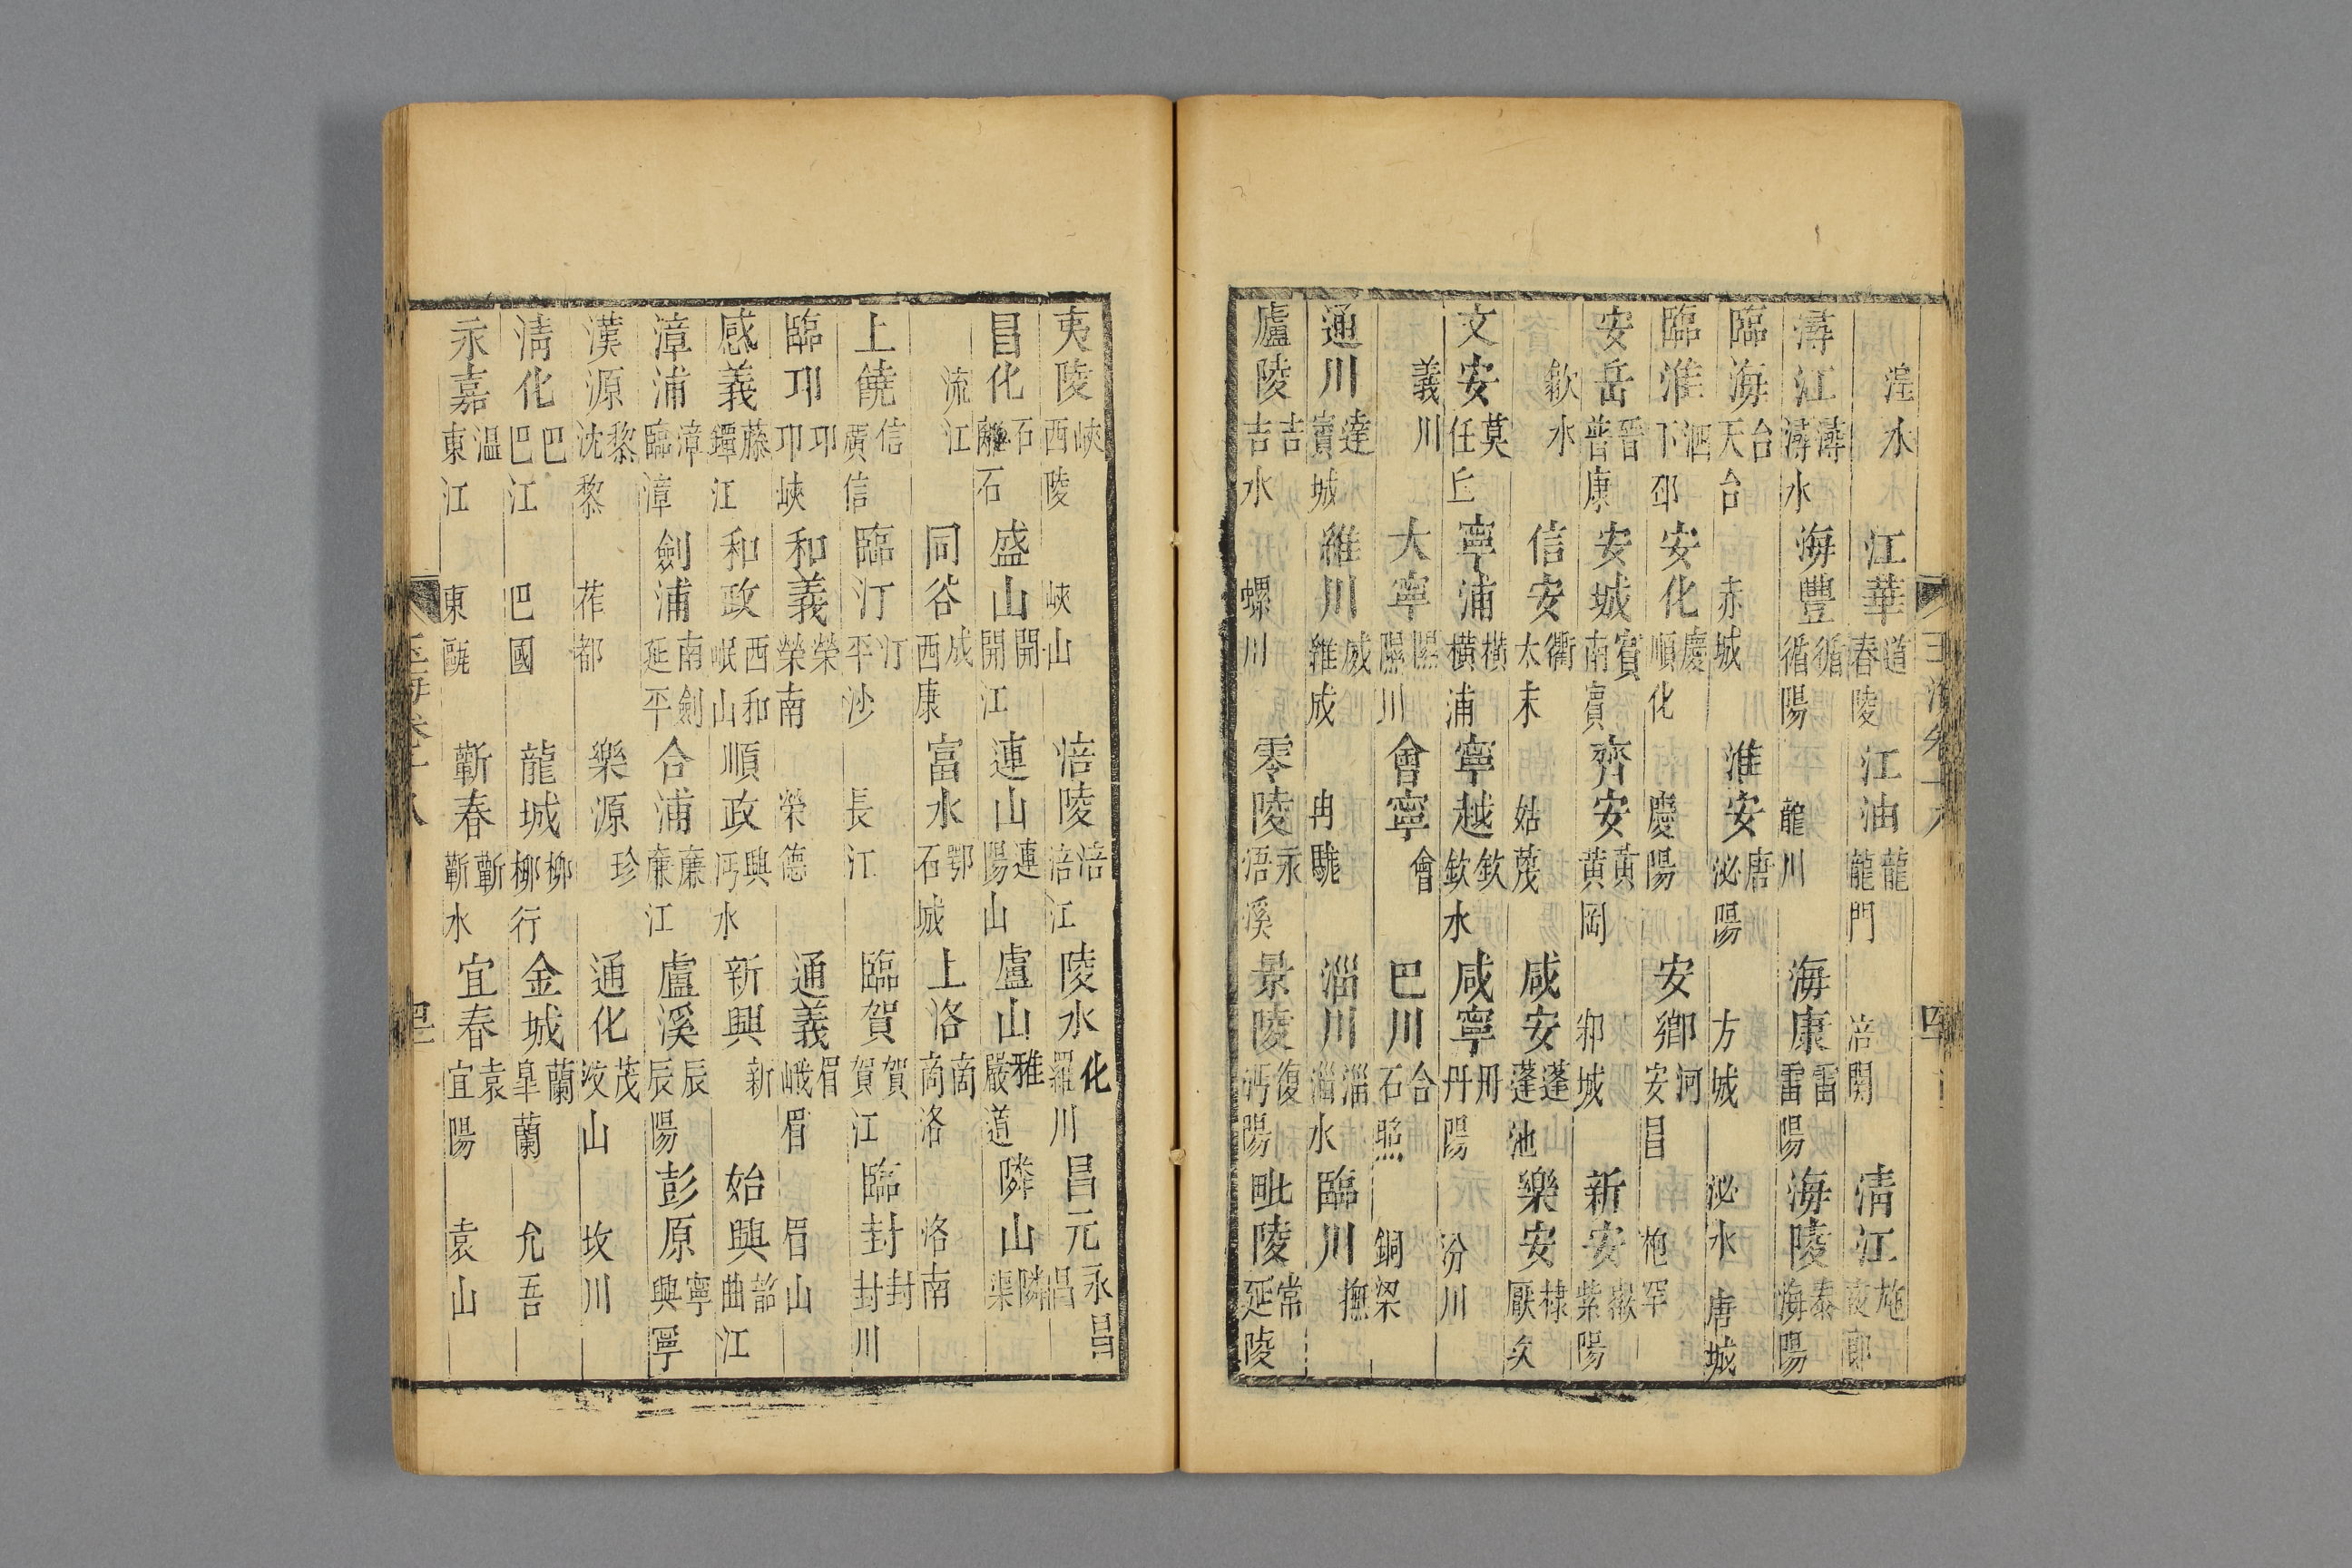 湟水 江華道舂陵 江油龍龍門 涪関 清江施夜郎
潯江潯潯水 海豐循循陽 龍川 海康雷雷陽 海陵泰海陽
臨海台天台 赤城 淮安唐泌陽 方城 泌水 唐城
臨淮泗下邳 安化慶順化 慶陽 安鄉河安昌 枹罕
安岳晉普康 安城賓南賓 齊安黃黃岡 邾城 新安嶽紫陽
歙水 信安衢太末 姑蔑 咸安蓬蓬池 樂安棣厭次
文安莫任丘 寧浦橫橫浦 寧越欽欽水 咸寧丹丹陽 汾川
義川 大寧隰隰川 會寧會 巴川合石照 銅梁
通川達賓城 維川威維成 冉駹 淄川淄淄水 臨川撫
廬陵吉吉水 螺川 零陵永浯溪 景陵復沔陽 毗陵常延陵
夷陵峽西陵 峽山 涪陵涪涪江 陵水化羅川 昌元昌永昌
昌化石離石 盛山開開江 連山連陽山 盧山雅嚴道 隣山隣渠
流江 同谷成西康 富水鄂石城 上洛商商洛 洛南
上饒信廣信 臨汀汀平沙 長汀 臨賀賀賀江 臨封封封川
臨卭卭卭峽 和義榮榮南 榮德 通義眉峨眉 眉山
感義藤鐔江 和政西和岷山 順政興沔水 新興新 始興韶曲江
漳浦漳臨漳 劍浦南劍延平 合浦廉廉江 盧溪辰辰陽 彭原寧興寧
漢源黎沈黎 莋都 樂源珍 通化茂汶山 汶川
清化巴巴江 巴國 龍城柳柳行 金城蘭皐蘭 允吾
永嘉温東江 東甌 蘄春蘄蘄水 宜春袁宜陽 袁山